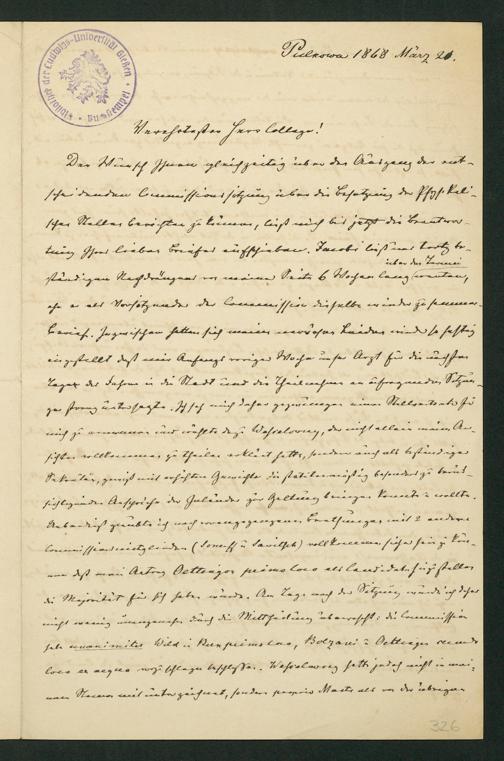 Bibliothek der Ludwigs-Universität Gießen.
Pulkowa 1868 März 20.
Verehrtester Herr College!
Der Wunsch Ihnen gleichzeitig über den Ausgang der ent-
scheidenden Commissionssitzung über die Besetzung der Physikali-
schen Stelle berichten zu können, ließ mich bis jetzt die Beantwor-
tung Ihres lieben Briefes aufschieben. Jacobi ließ uns trotz be-
ständigen Nachdrängens von meiner Seite 6 Wochen lang über den Termin warten,
ehe er als Vorsitzender der Commission dieselbe wieder zusammen
berief. Inzwischen hatten sich meine nervösen Leiden wieder so heftig
eingestellt daß mir Anfangs voriger Woche unser Arzt für die nächsten
Tage das Fahren in die Stadt und die Theilnahme an aufregenden Sitzun-
gen streng untersagte. Ich sah mich daher gezwungen einen Stellvertreter für
mich zu ernennen und wählte dazu Wesselowsky, der nicht allein meine An-
sichten vollkommen zu theilen erklärt hatte, sondern auch als beständiger
Sekretär, gewiß mit erhöhtem Gewichte die statutenmäßig besonders zu berück-
sichtigenden Ansprüche der Inländer zur Geltung bringen konnte u wollte.
glaubte ich nach vorangegangenen Berathungen mit 2 andern
Commissionsmitgliedern (Somoff u Sawitsch) vollkommen sicher sein zu kön-
nen daß mein Antrag Oettingen primo loco als Candidat hinzustellen
die Majorität für sich haben würde. Am Tage nach der Sitzung wurde ich daher
nicht wenig unangenehm durch die Mittheilung überrascht: die Commission
habe unanimiter Wild in Bern primo loco, Bolzani u Oettingen secundo
loco ex aequo vorzuschlagen beschlossen. Wesselowsky hatte jedoch nicht in mei-
nem Namen mit unterzeichnet, sondern proprio Marte als von den übrigen
326